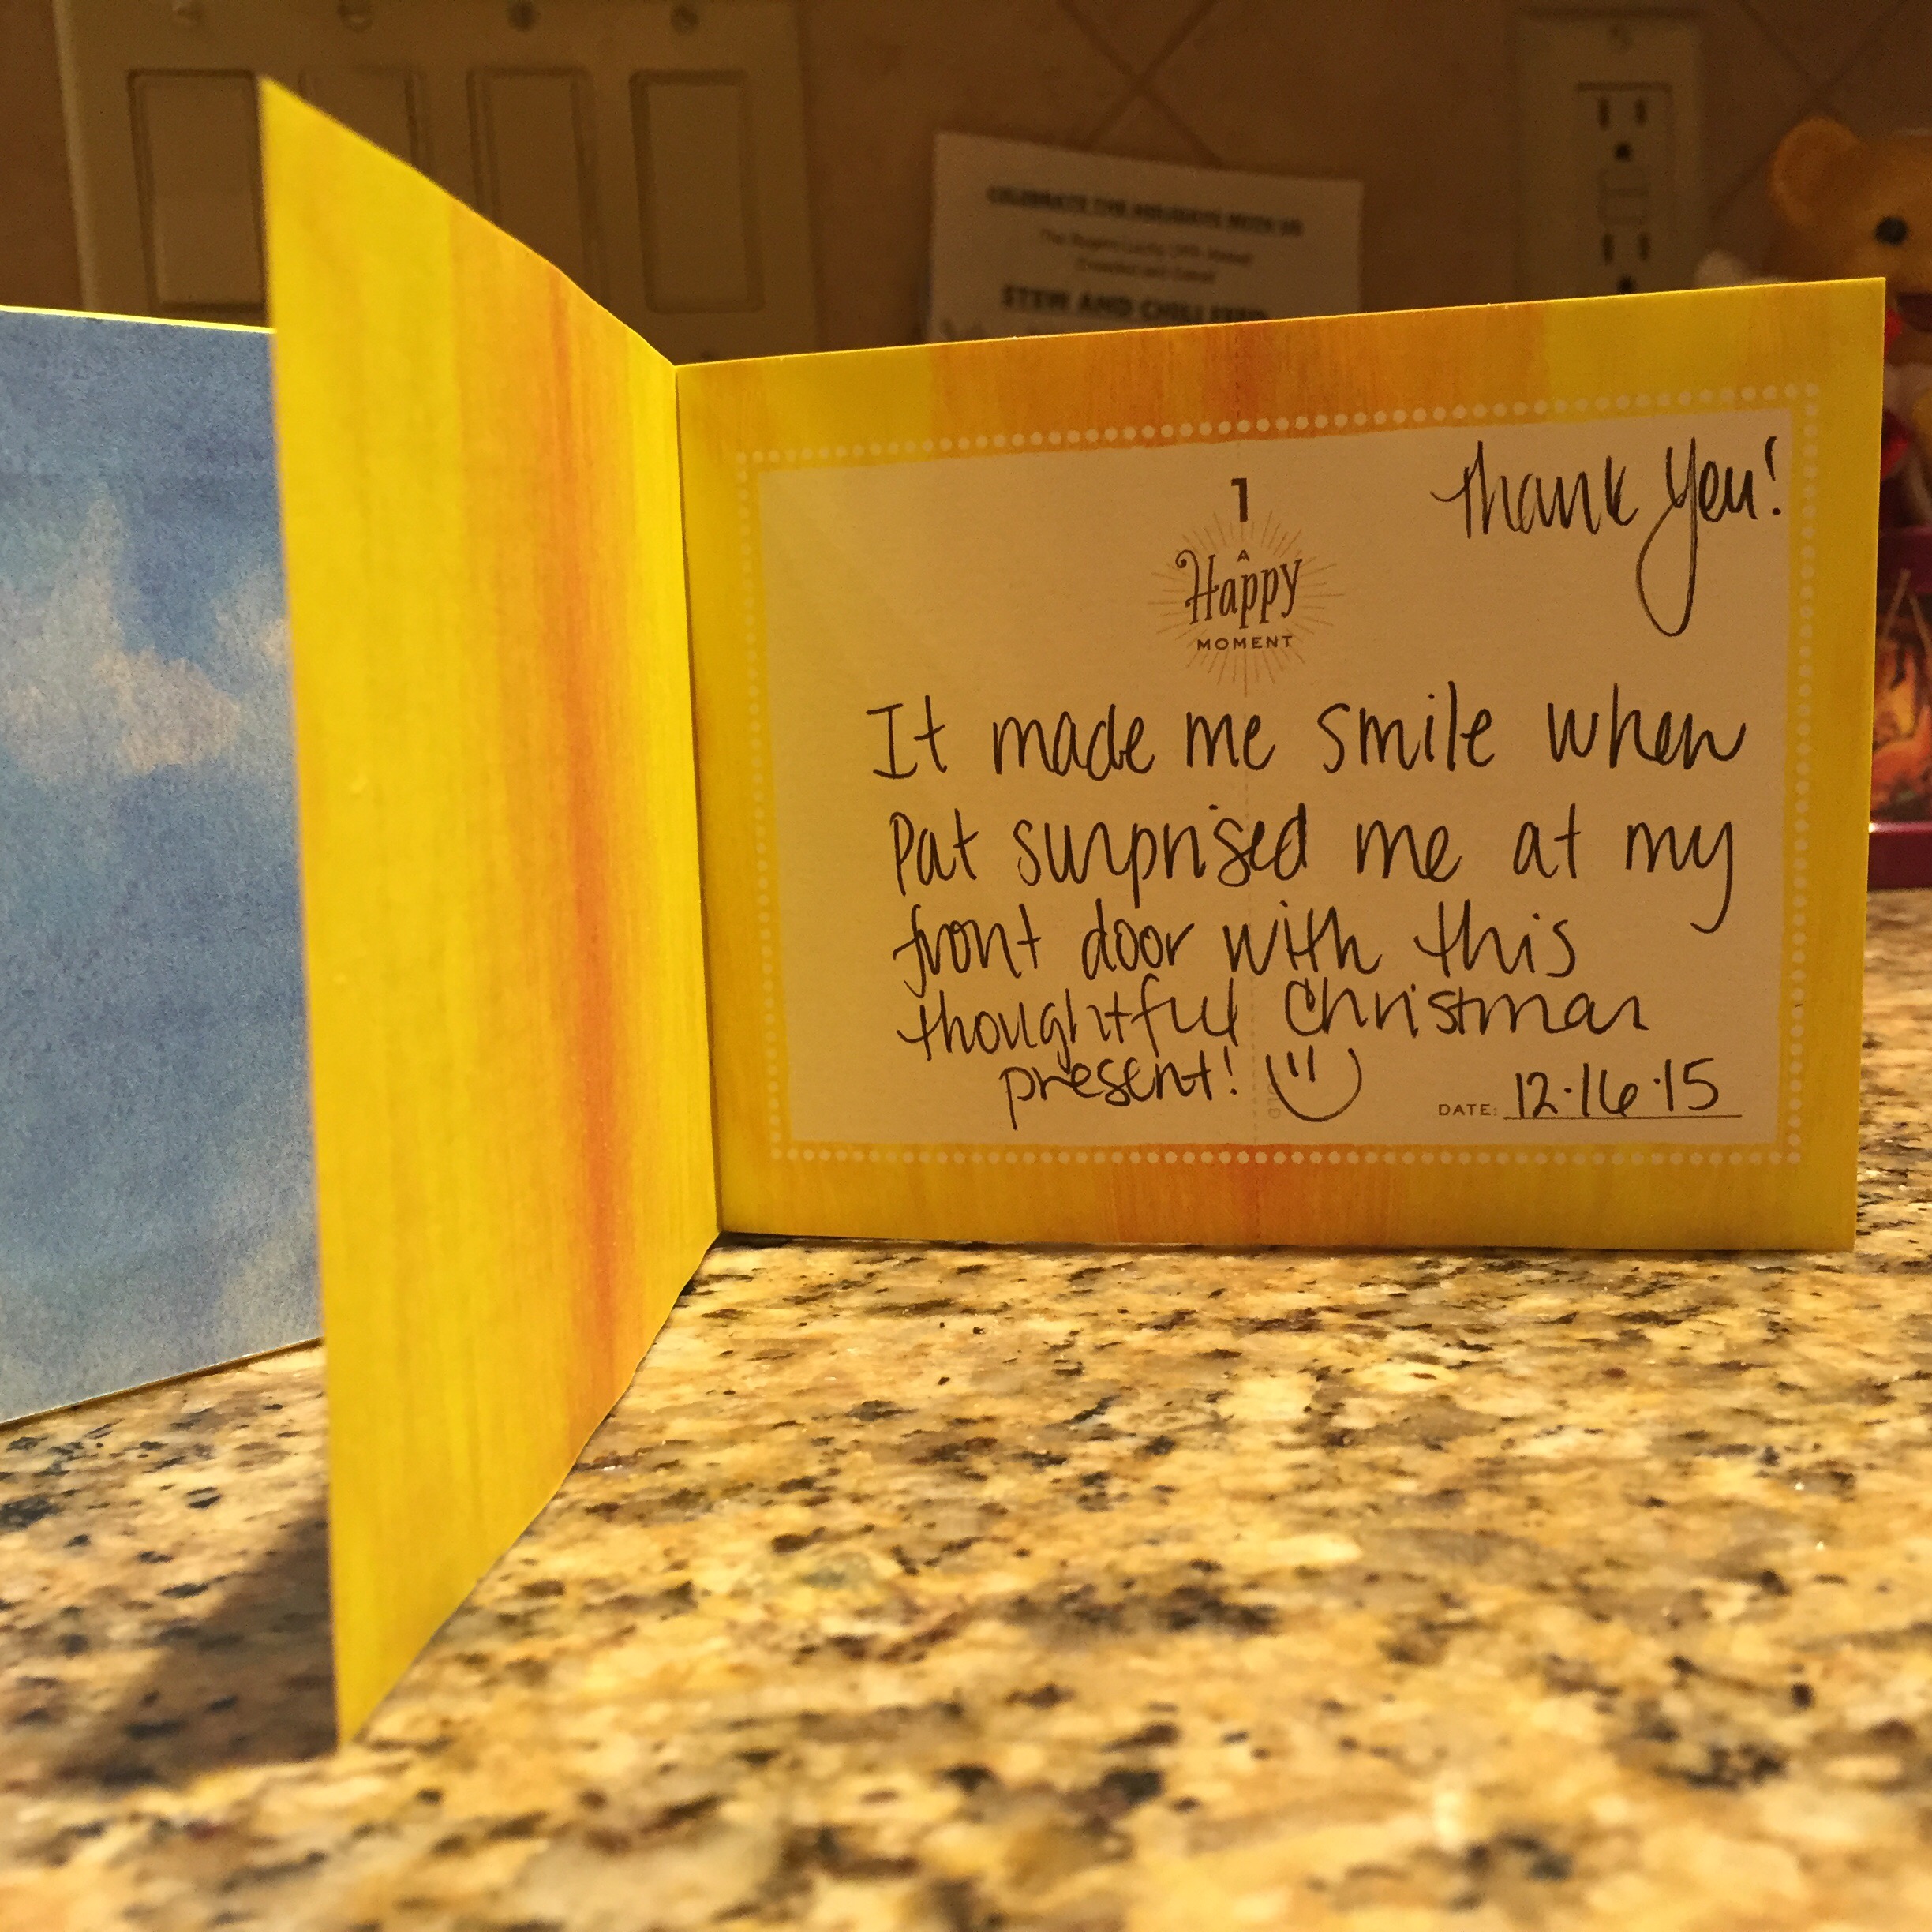 CELEBRATE THE HOLIDAYS WITH US
STEW AND CHILI FEED
Thank you!
1
A
Happy
MOMENT
It made me smile when
Pat surprised me at my
front door with this
thoughtful Christmas
present!
DATE: 12·16·15